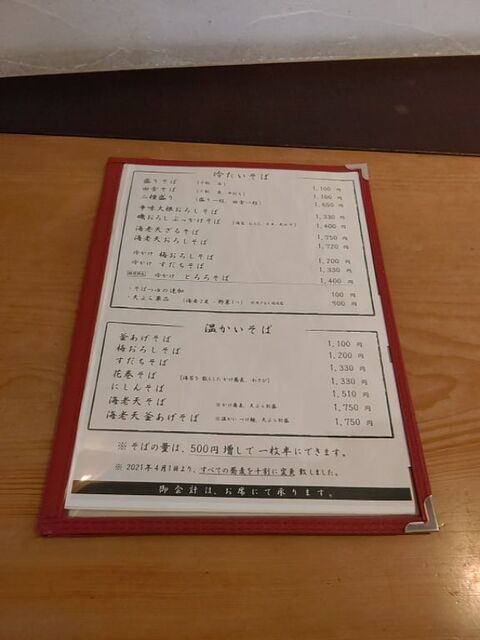 冷たいそば
盛りそば 1,100 円
田舎そば 1,100 円
二種盛り (盛り一枚、田舎一枚) 1,650 円
辛味大根おろしそば 1,330 円
磯おろしぶっかけそば 1,600 円
海老天ざるそば 1,750 円
海老天おろしそば 1,720 円
冷かけ 梅おろしそば 1,200 円
冷かけ すだちそば 1,330 円
冷かけ とろろそば 1,400 円
・そばつゆの追加 100 円
・天ぷら単品 (海老2尾・野菜1つ) 500 円
温かいそば
釜あげそば 1,100 円
梅おろしそば 1,200 円
すだちそば 1,330 円
花巻そば (海苔を散らしたかけ蕎麦、わさび) 1,330 円
にしんそば 1,510 円
海老天そば ※かけ蕎麦、天ぷら別盛 1,750 円
海老天釜あげそば ※温かいつけ麺、天ぷら別盛 1,750 円
※そばの量は、500円増しで一枚半にできます。
※2021年4月1日より、すべての蕎麦を十割に変更致しました。
御会計は、お席にて承ります。